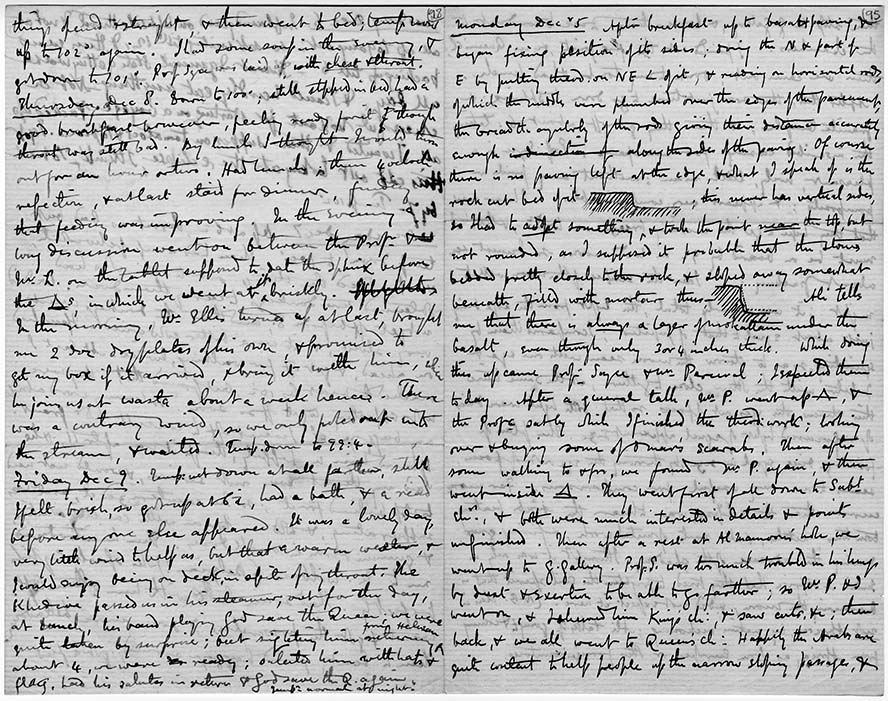 98
things opened straight, & then went to bed; temp. was
up to 102° again. I had some soup in the evening, &
got down to 101°. Prof. Sayce was laid up with chest & throat.
Thursday Dec 8. Down to 100°; still stopped in bed, had a
good breakfast however, feeling ready for it though
throat was still bad. By lunch I thought I could turn
out for an hour or two. Had lunch & then 4 o'clock
refection, & at last staid for dinner, finding
that feeding was improving. In the evening a
long discussion went on between the Prof. &
Mr. L. on the tablet supposed to date the Sphinx before
the △s, in which we went at it briskly.
In the morning, Mr Ellis turned up at last, brought
me 2 doz dry plates of his own, & promised to
get my box if it arrived, & bring it with him, if
he join us at Wasta about a week hence. There
was a contrary wind, so we only poled out into
the stream, & waited. Temp. down to 99.4.
Friday Dec 9. Temp. not down at all farther, still
I felt brisk, so got up at 6½, had a bath, & a read
before anyone else appeared. It was a lovely day,
very little wind to help us, but that & warm weather, &
I could enjoy being on deck, in spite of my throat. The
Khedive passed us in his steamer, out for the day,
at lunch, his band playing God save the Queen; we were
quite taken by surprise; but sighting him returning from Helwan
about 4, we were ready; saluted him with hats &
flag, had his salutes in return & God save the Q. again.
Temp. normal at night.
95
Monday Dec 5 After breakfast up to basalt paving, &
began fixing position of its sides; doing the N & part of
E by putting theod. on NE ∠ of it, & reading on horizontal rods,
of which the middles were plumbed over the edges of the pavement,
the breadth angularly of the rods giving their distance accurately
enough along the sides of the paving. Of course
there is no paving left at the edge, & what I speak of is the
rock cut bed of it ; this never has vertical sides,
so I had to adopt something, & took the point near the top, but
not rounded, as I supposed it probable that the stones
bedded pretty closely to the rock, & sloped away somewhat
beneath, filled with mortar thus Ali tells
me that there is always a layer of under the
basalt, even though only 3 or 4 inches thick. While doing
this up came Prof. Sayce & Mr Percival; I expected them
today. After a general talk, Mr P. went up △, &
the Prof. sat by while I finished the theod. work; looking
over & buying some of Omar's scarabs. Then after
some walking to & fro, we found Mr P. again, & then
went inside △. They went first of all down to Subt.
ch., & both were much interested in details & points
unfinished. Then after a rest at Al Mamoun's hole, we
went up to G. Gallery. Prof. S. was too much troubled in his lungs
by dust & exertion to be able to go farther; so Mr P. & I
went on, & I showed him King's ch. & saw cuts, &c; then
back, & we all went to Queen's ch. Happily the Arabs are
quite content to help people up the narrow sloping passages, &